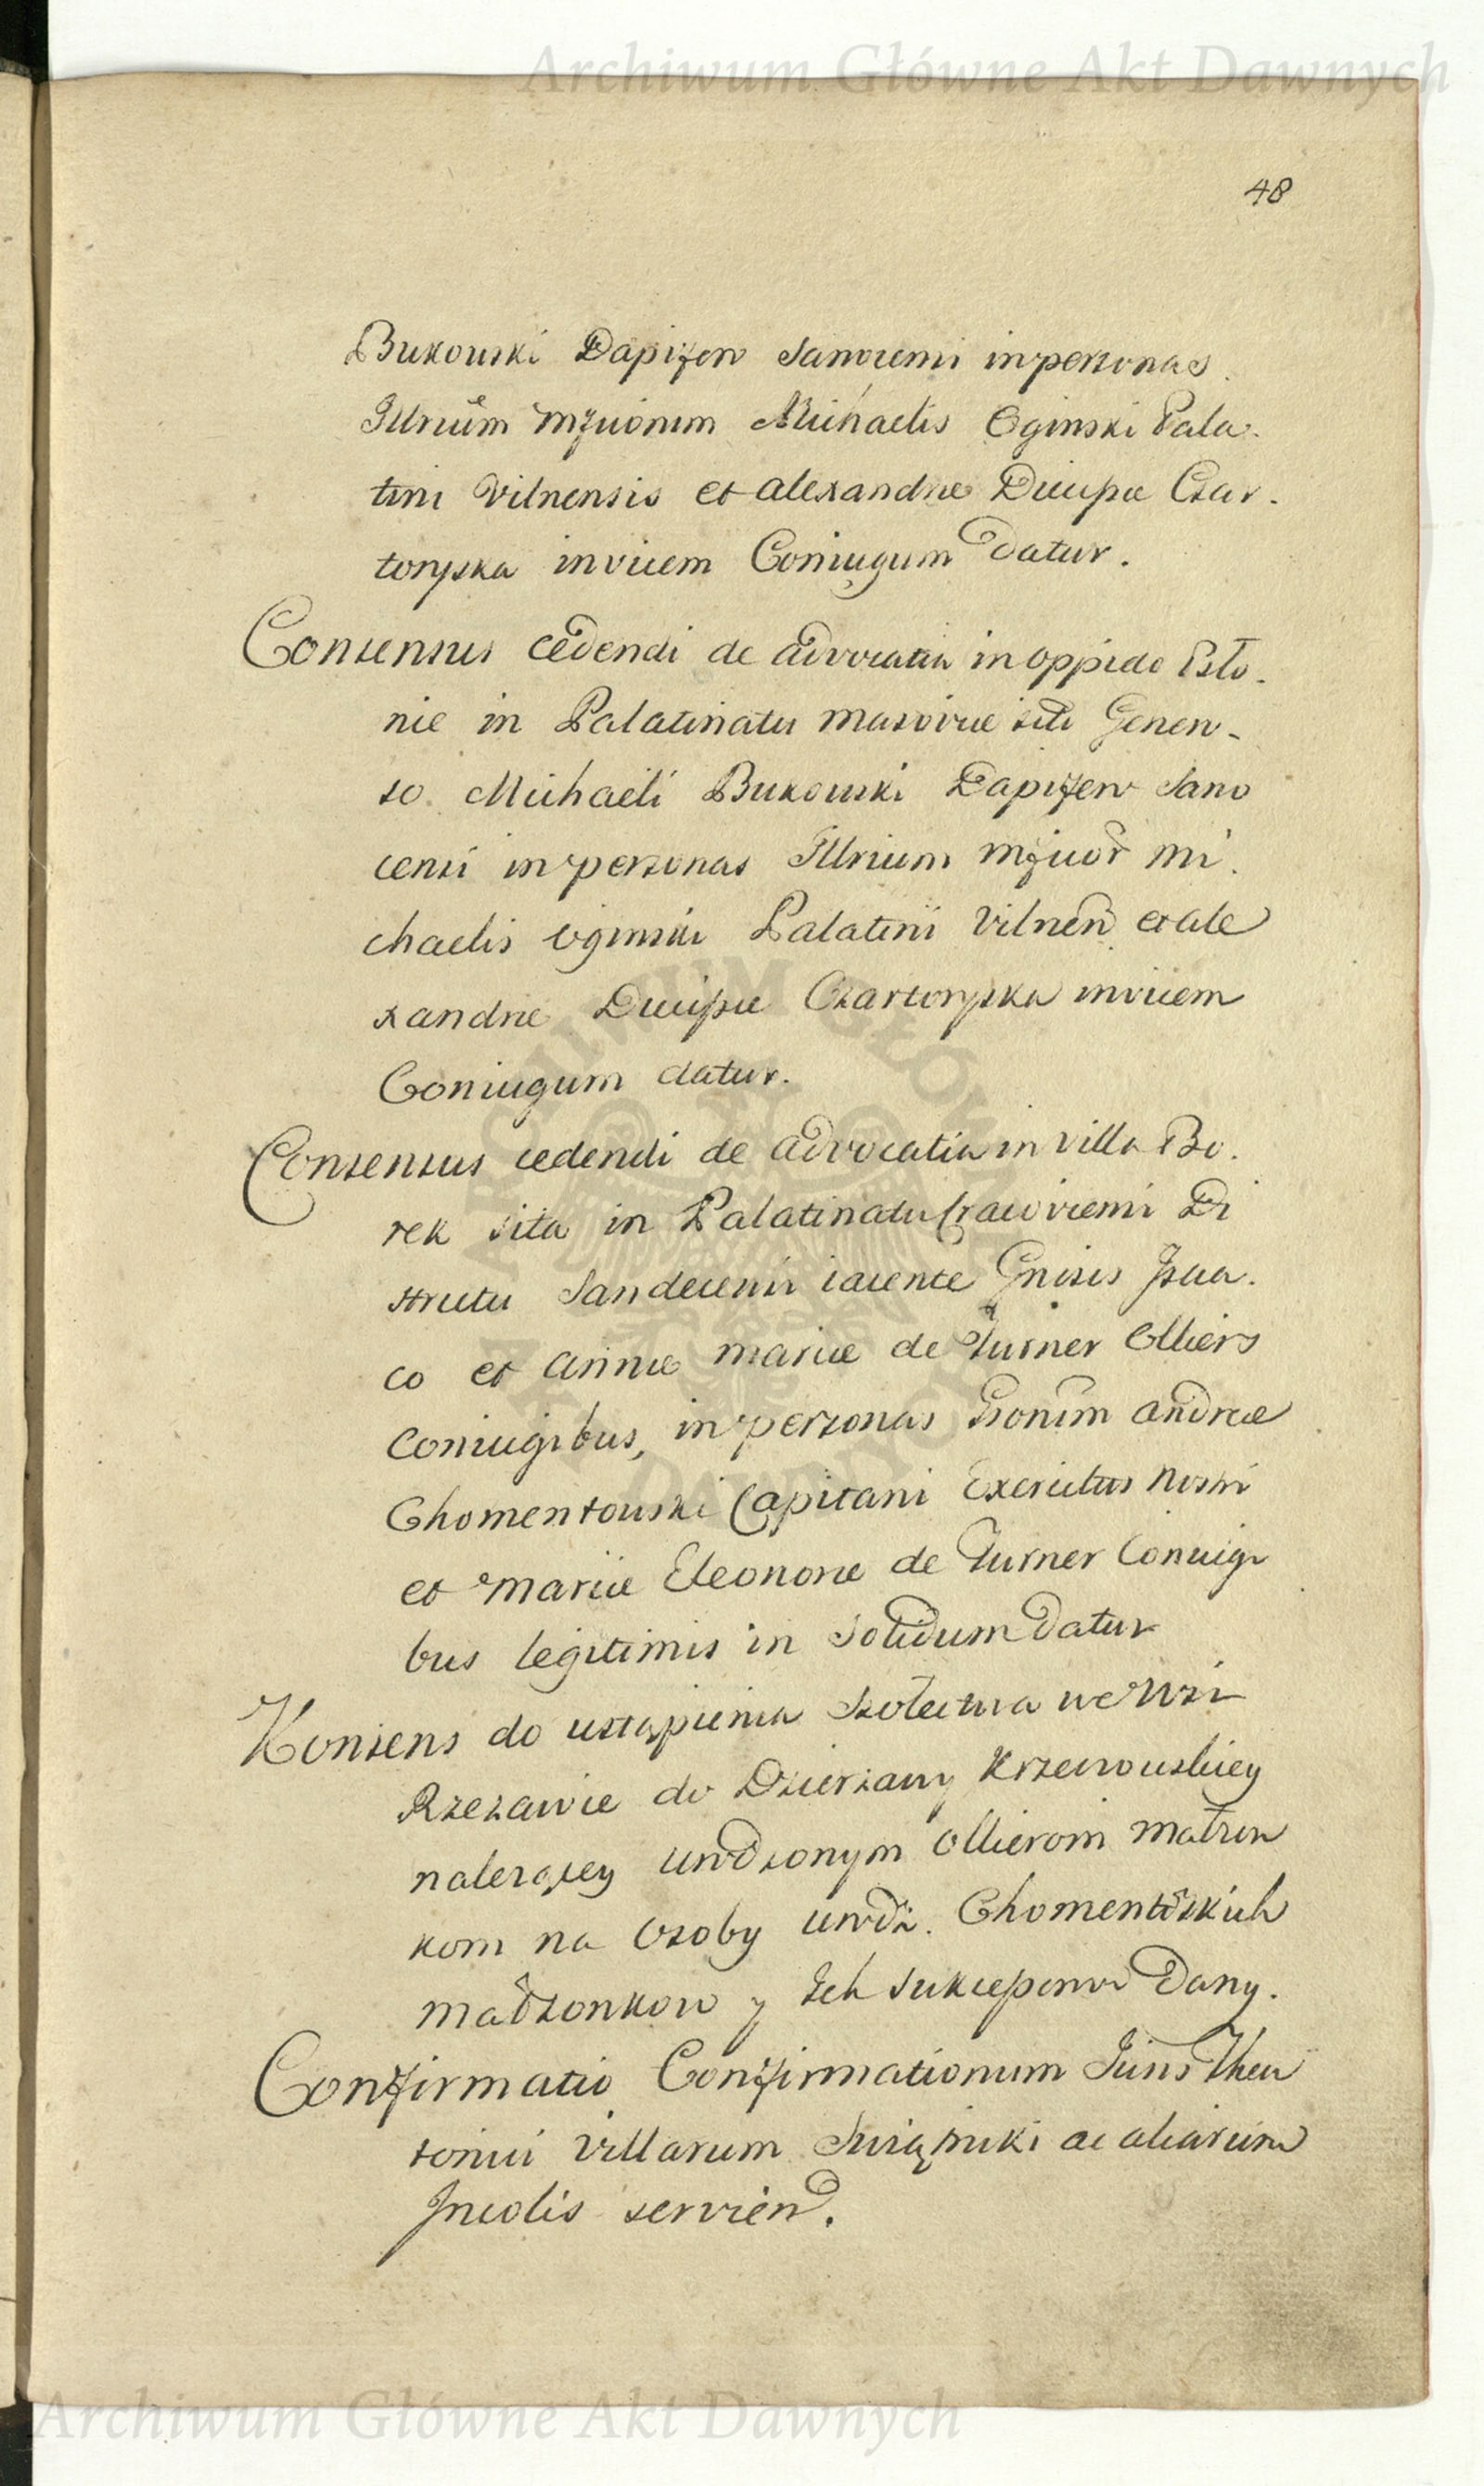 Archiwum Główne Akt Dawnych
48
Bukowski Dapifero Sanocensi in personas
Illrium Mgficorum Michaelis Oginski Pala-
tini Vilnensis et Alexandrae Ducissae Czar-
toryska invicem Coniugum datur.
Consensus cedendi de advocatia in oppido Osto-
nie in Palatinatu Masoviae siti Genero-
so Michaeli Bukowski Dapifero Sano
censi in personas Illrium Mgficor Mi
chaelis Oginski Palatini Vilnen et Ale
xandrae Ducissae Czartoryska invicem
Coniugum datur.
Consensus cedendi de advocatia in villa Bo-
rek sita in Palatinatu Cracoviensi Di
strictu Sandecensi iacente Gnisis Isaa-
co et Annae Mariae de Turner Olliers
Coniugibus, in personas Gsorum Andreae
Chomentowski Capitani Exercitus Nostri
et Mariae Eleonorae de Turner Coniugi
bus legitimis in solidum datur
Konsens do ustąpienia Szołectwa we Wsi
Rzezawie do Dzierzawy Krzeczowskiey
nalezącey urodzonym Ollierom Małżon
kom na Osoby urodz. Chomentowskich
małżonkow y Ich Sukcessorow Dany.
Confirmatio Confirmationum Juris Theu
tonici Villarum Swiątniki ac aliarum
Incolis servien.
Archiwum Główne Akt Dawnych